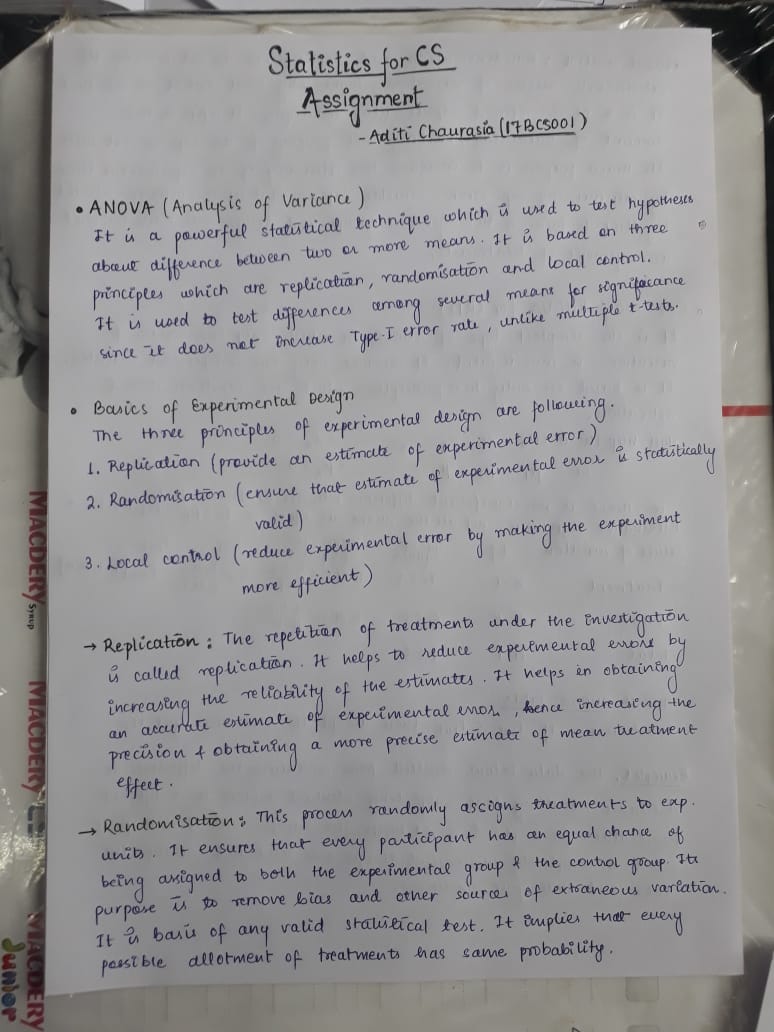 Statistics for CS
Assignment
- Aditi Chaurasia (17BCS001)
• ANOVA (Analysis of Variance)
It is a powerful statistical technique which is used to test hypotheses
about difference between two or more means. It is based on three
principles which are replication, randomisation and local control.
It is used to test differences among several means for significance
since it does not increase Type-I error rate, unlike multiple t-tests.
• Basics of Experimental Design
The three principles of experimental design are following.
1. Replication (provide an estimate of experimental error)
2. Randomisation (ensure that estimate of experimental error is statistically
valid)
3. Local control (reduce experimental error by making the experiment
more efficient)
→ Replication : The repetition of treatments under the investigation
is called replication. It helps to reduce experimental errors by
increasing the reliability of the estimates. It helps in obtaining
an accurate estimate of experimental error, hence increasing the
precision & obtaining a more precise estimate of mean treatment
effect.
→ Randomisation : This process randomly assigns treatments to exp.
units. It ensures that every participant has an equal chance of
being assigned to both the experimental group & the control group. Its
purpose is to remove bias and other sources of extraneous variation.
It is basis of any valid statistical test. It implies that every
possible allotment of treatments has same probability.
MACDERY Syrup
MACDERY
MACDERY
Junior